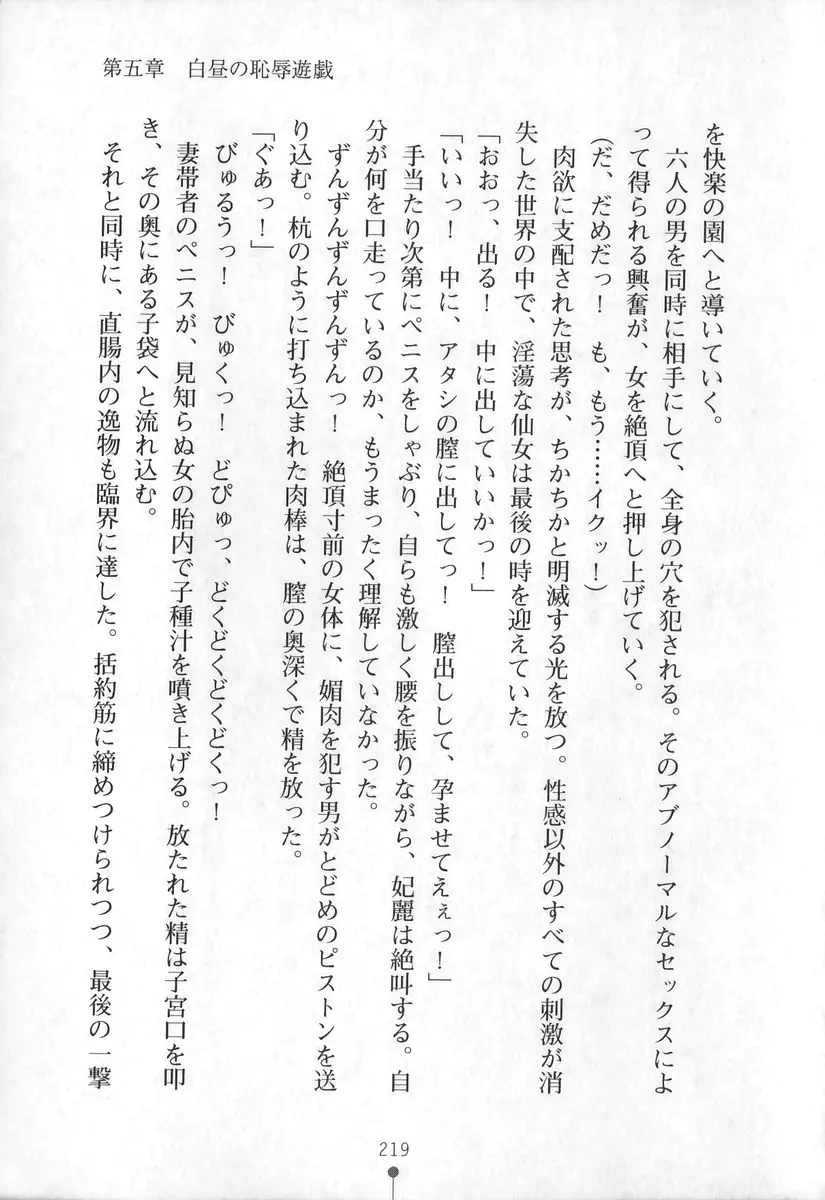 第五章　白昼の恥辱遊戯
を快楽の園へと導いていく。
　六人の男を同時に相手にして、全身の穴を犯される。そのアブノーマルなセックスによ
って得られる興奮が、女を絶頂へと押し上げていく。
（だ、だめだっ！　も、もう……イクッ！）
　肉欲に支配された思考が、ちかちかと明滅する光を放つ。性感以外のすべての刺激が消
失した世界の中で、淫蕩な仙女は最後の時を迎えていた。
「おおっ、出る！　中に出していいかっ！」
「いいっ！　中に、アタシの膣に出してっ！　膣出しして、孕ませてえぇっ！」
　手当たり次第にペニスをしゃぶり、自らも激しく腰を振りながら、妃麗は絶叫する。自
分が何を口走っているのか、もうまったく理解していなかった。
　ずんずんずんずんずんっ！　絶頂寸前の女体に、媚肉を犯す男がとどめのピストンを送
り込む。杭のように打ち込まれた肉棒は、膣の奥深くで精を放った。
「ぐあっ！」
　びゅるうっ！　びゅくっ！　どぴゅっ、どくどくどくどくっ！
　妻帯者のペニスが、見知らぬ女の胎内で子種汁を噴き上げる。放たれた精は子宮口を叩
き、その奥にある子袋へと流れ込む。
　それと同時に、直腸内の逸物も臨界に達した。括約筋に締めつけられつつ、最後の一撃
219